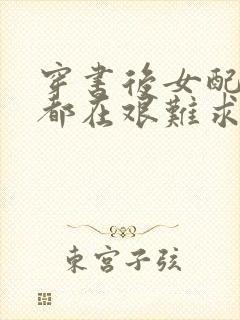 穿書後女配
都在艱難求
東宮子弦